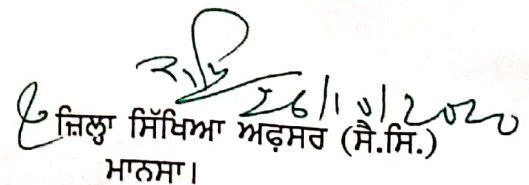 26/10/2020
ਜ਼ਿਲ੍ਹਾ ਸਿੱਖਿਆ ਅਫ਼ਸਰ (ਸੈ.ਸਿ.)
ਮਾਨਸਾ।